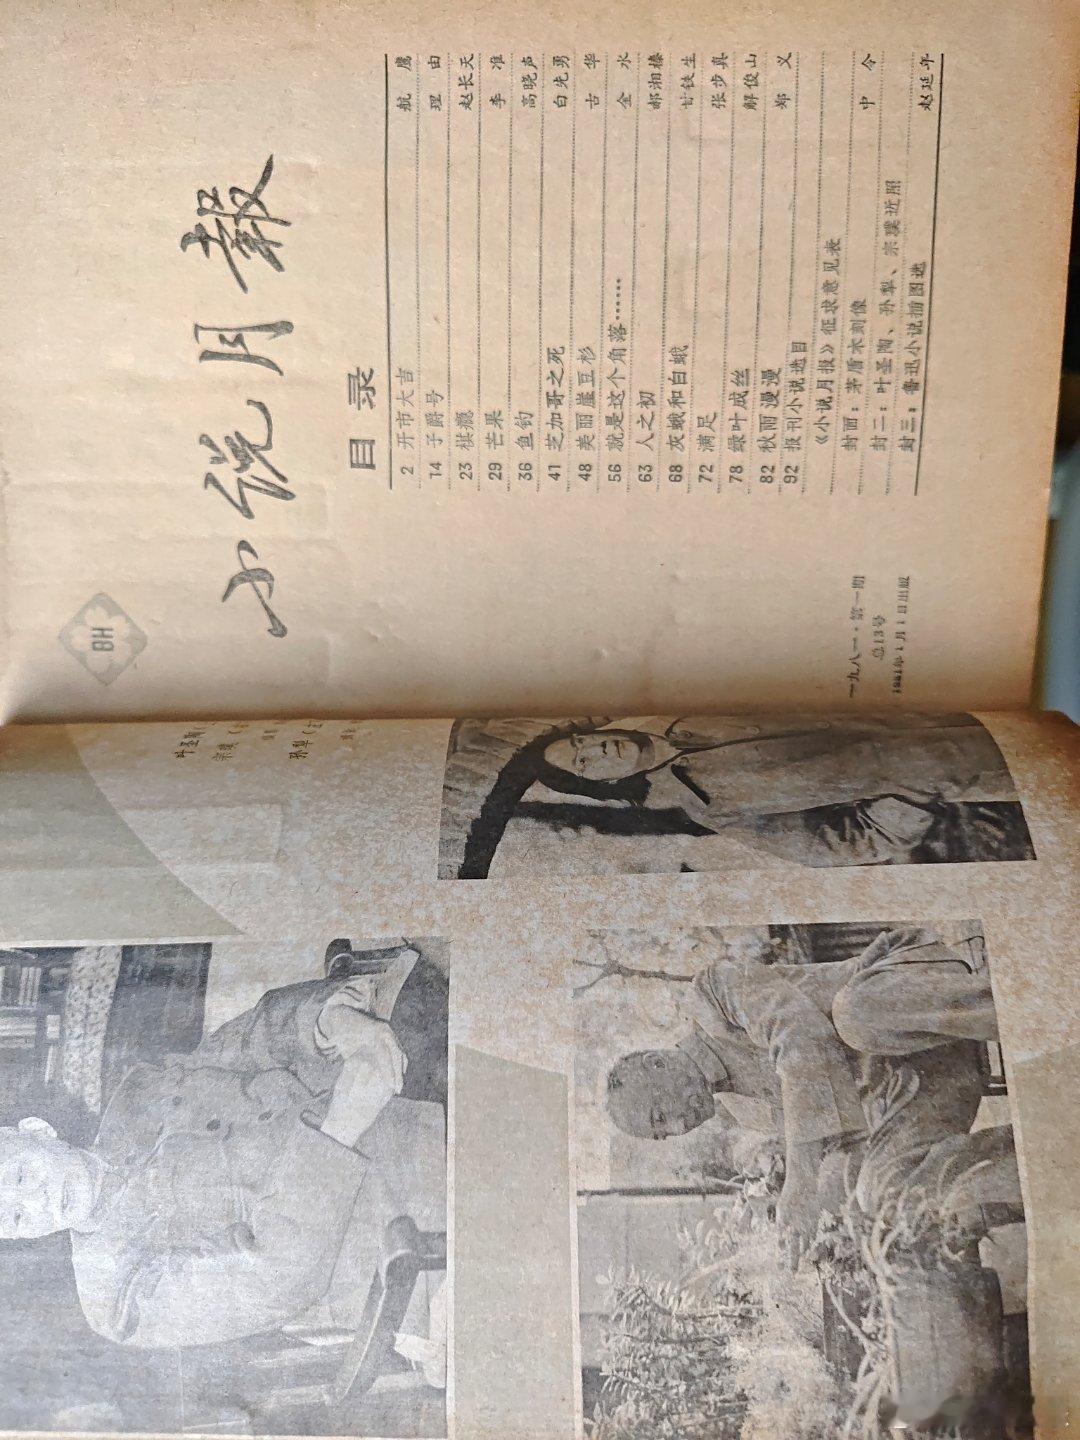 小说月報
目录
2 开市大吉 航鹰
14 子爵号 理由
23 棋瘾 赵长天
29 芒果 李准
36 鱼钓 高晓声
41 芝加哥之死 白先勇
48 美丽崖豆杉 古华
56 就是这个角落…… 金水
63 人之初 郝湘榛
68 灰蛾和白蛾 甘铁生
72 满足 张步真
78 绿叶成丝 解俊山
82 秋雨漫漫 郑义
92 报刊小说选目
《小说月报》征求意见表
封面：茅盾木刻像 中令
封二：叶圣陶、孙犁、宗璞近照
封三：鲁迅小说插图选 赵延年
一九八一·第一期
总13号
1981年1月1日出版
BH
叶圣陶
宗璞（
孙犁（